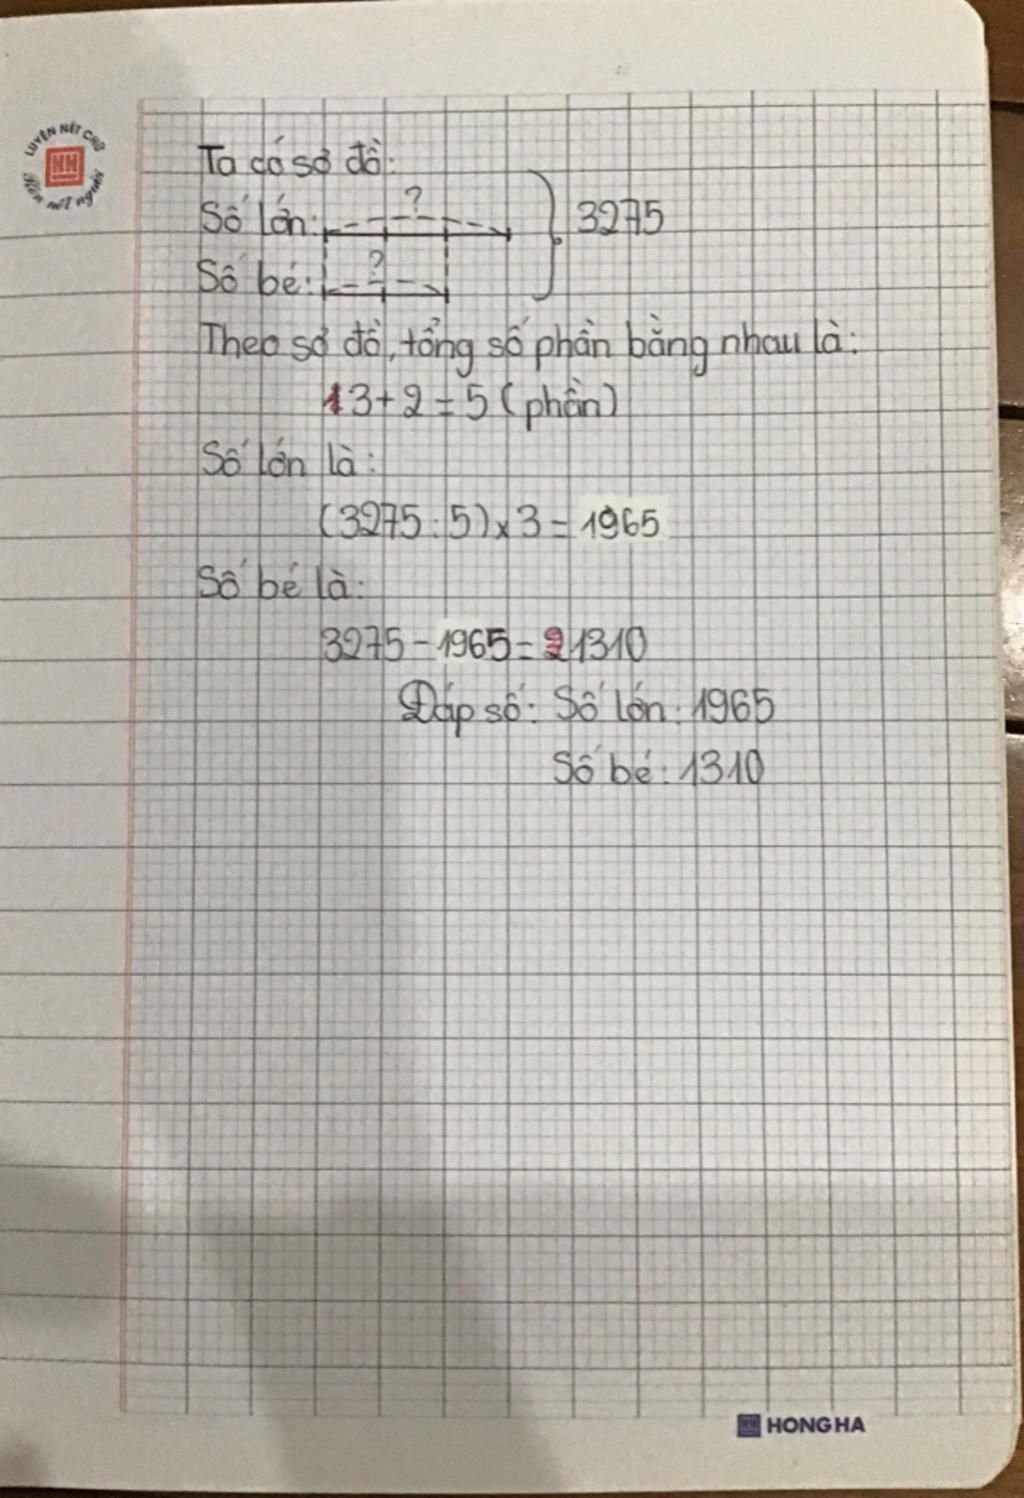 LUYỆN NÉT CHỮ
Rèn nết người
Ta có sơ đồ:
Số lớn: ?
3275
Số bé: ?
Theo sơ đồ, tổng số phần bằng nhau là:
13+2=5 (phần)
Số lớn là:
(3275:5)x3=1965
Số bé là:
3275-1965=21310
Đáp số: Số lớn: 1965
Số bé: 1310
HONG HA